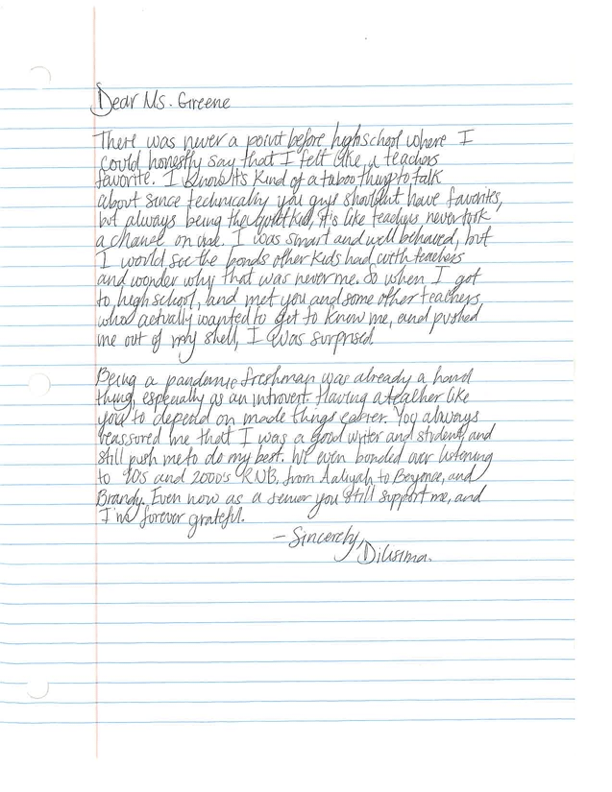 Dear Ms. Greene
There was never a point before highschool where I
could honestly say that I felt like a teachers
favorite. I know its kind of a taboo thing to talk
about since technically you guys shouldnt have favorites,
but always being the quiet kid, it's like teachers never took
a chance on me. I was smart and well behaved, but
I would see the bonds other kids had with teachers
and wonder why that was never me. So when I got
to high school, and met you and some other teachers,
who actually wanted to get to know me, and pushed
me out of my shell, I was surprised
Being a pandemic freshman was already a hard
thing, especially as an introvert. Having a teacher like
you to depend on made things easier. You always
reassored me that I was a good writer and student, and
still push me to do my best. We even bonded over listening
to 90s and 2000's RNB, from Aaliyah to Beyonce, and
Brandy. Even now as a senior you still support me, and
I'm forever grateful.
- Sincerely,